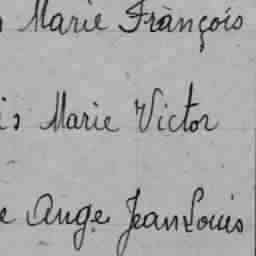 Marie François
is Marie Victor
e Ange Jean Louis